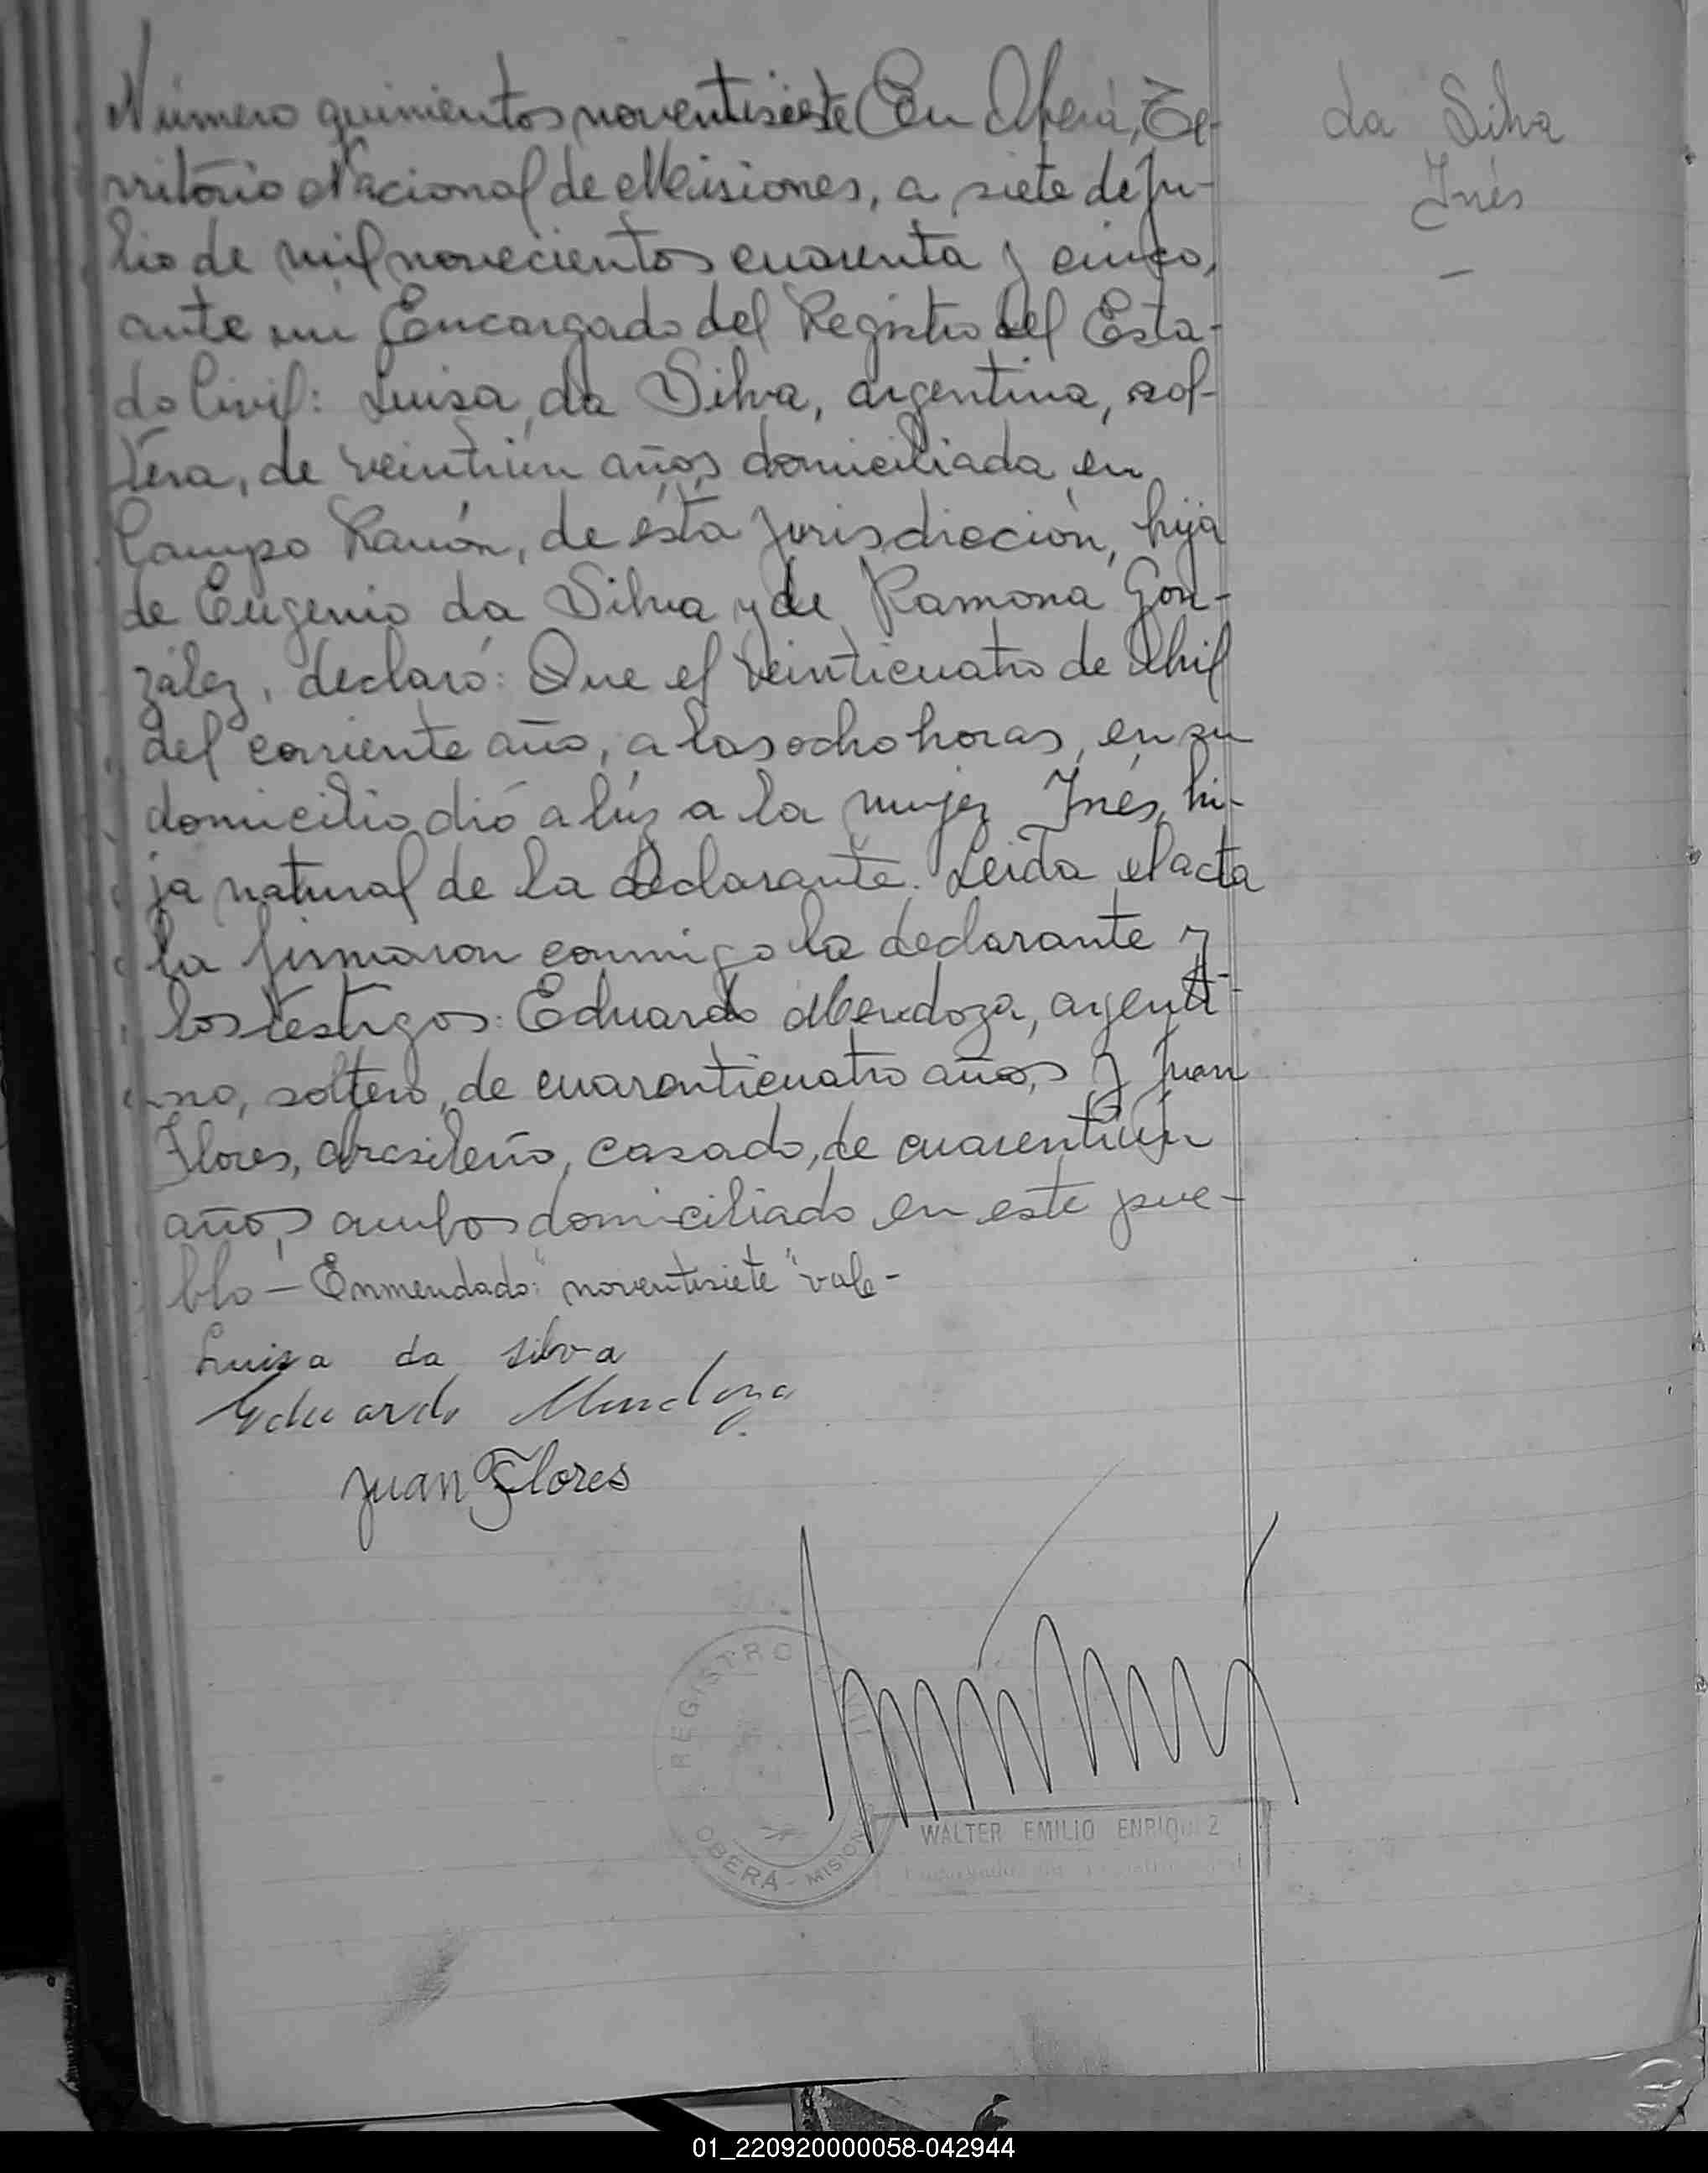 Número quinientos noventisiete En Oberá, Te-
rritorio Nacional de Misiones, a siete de Ju-
lio de mil novecientos cuarenta y cinco,
ante mi Encargado del Registro del Esta-
do Civil: Luisa da Silva, argentina, sol-
tera, de veintiún años domiciliada en
Campo Ramón, de ésta jurisdicción, hija
de Eugenio da Silva y de Ramona Gon-
zález, declaró: Que el veinticuatro de Abril
del corriente año, a las ocho horas, en su
domicilio dió a lúz a la mujer Inés, hi-
ja natural de la declarante. Leida el acta
la firmaron conmigo la declarante y
los testigos: Eduardo Mendoza, argenti-
no, soltero, de cuarenticuatro años, y Juan
Flores, brasileño, casado, de cuarentiún
años, ambos domiciliado en este pue-
blo - Enmendado: "noventisiete" vale -
Luisa da silva
Eduardo Mendoza
Juan Flores
da Silva
Inés
REGISTRO CIVIL
OBERÁ - MISIONES
WALTER EMILIO ENRIQUEZ
01_220920000058-042944